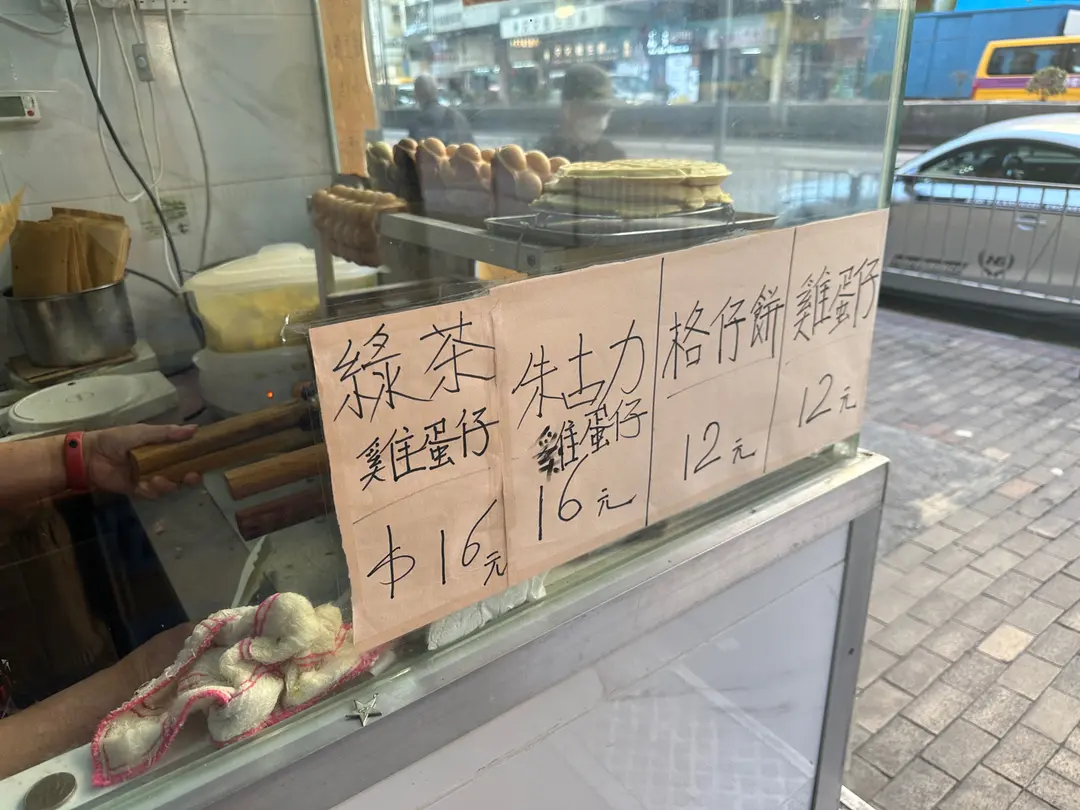 綠茶
雞蛋仔
$16元
朱古力
雞蛋仔
16元
格仔餅
12元
雞蛋仔
12元